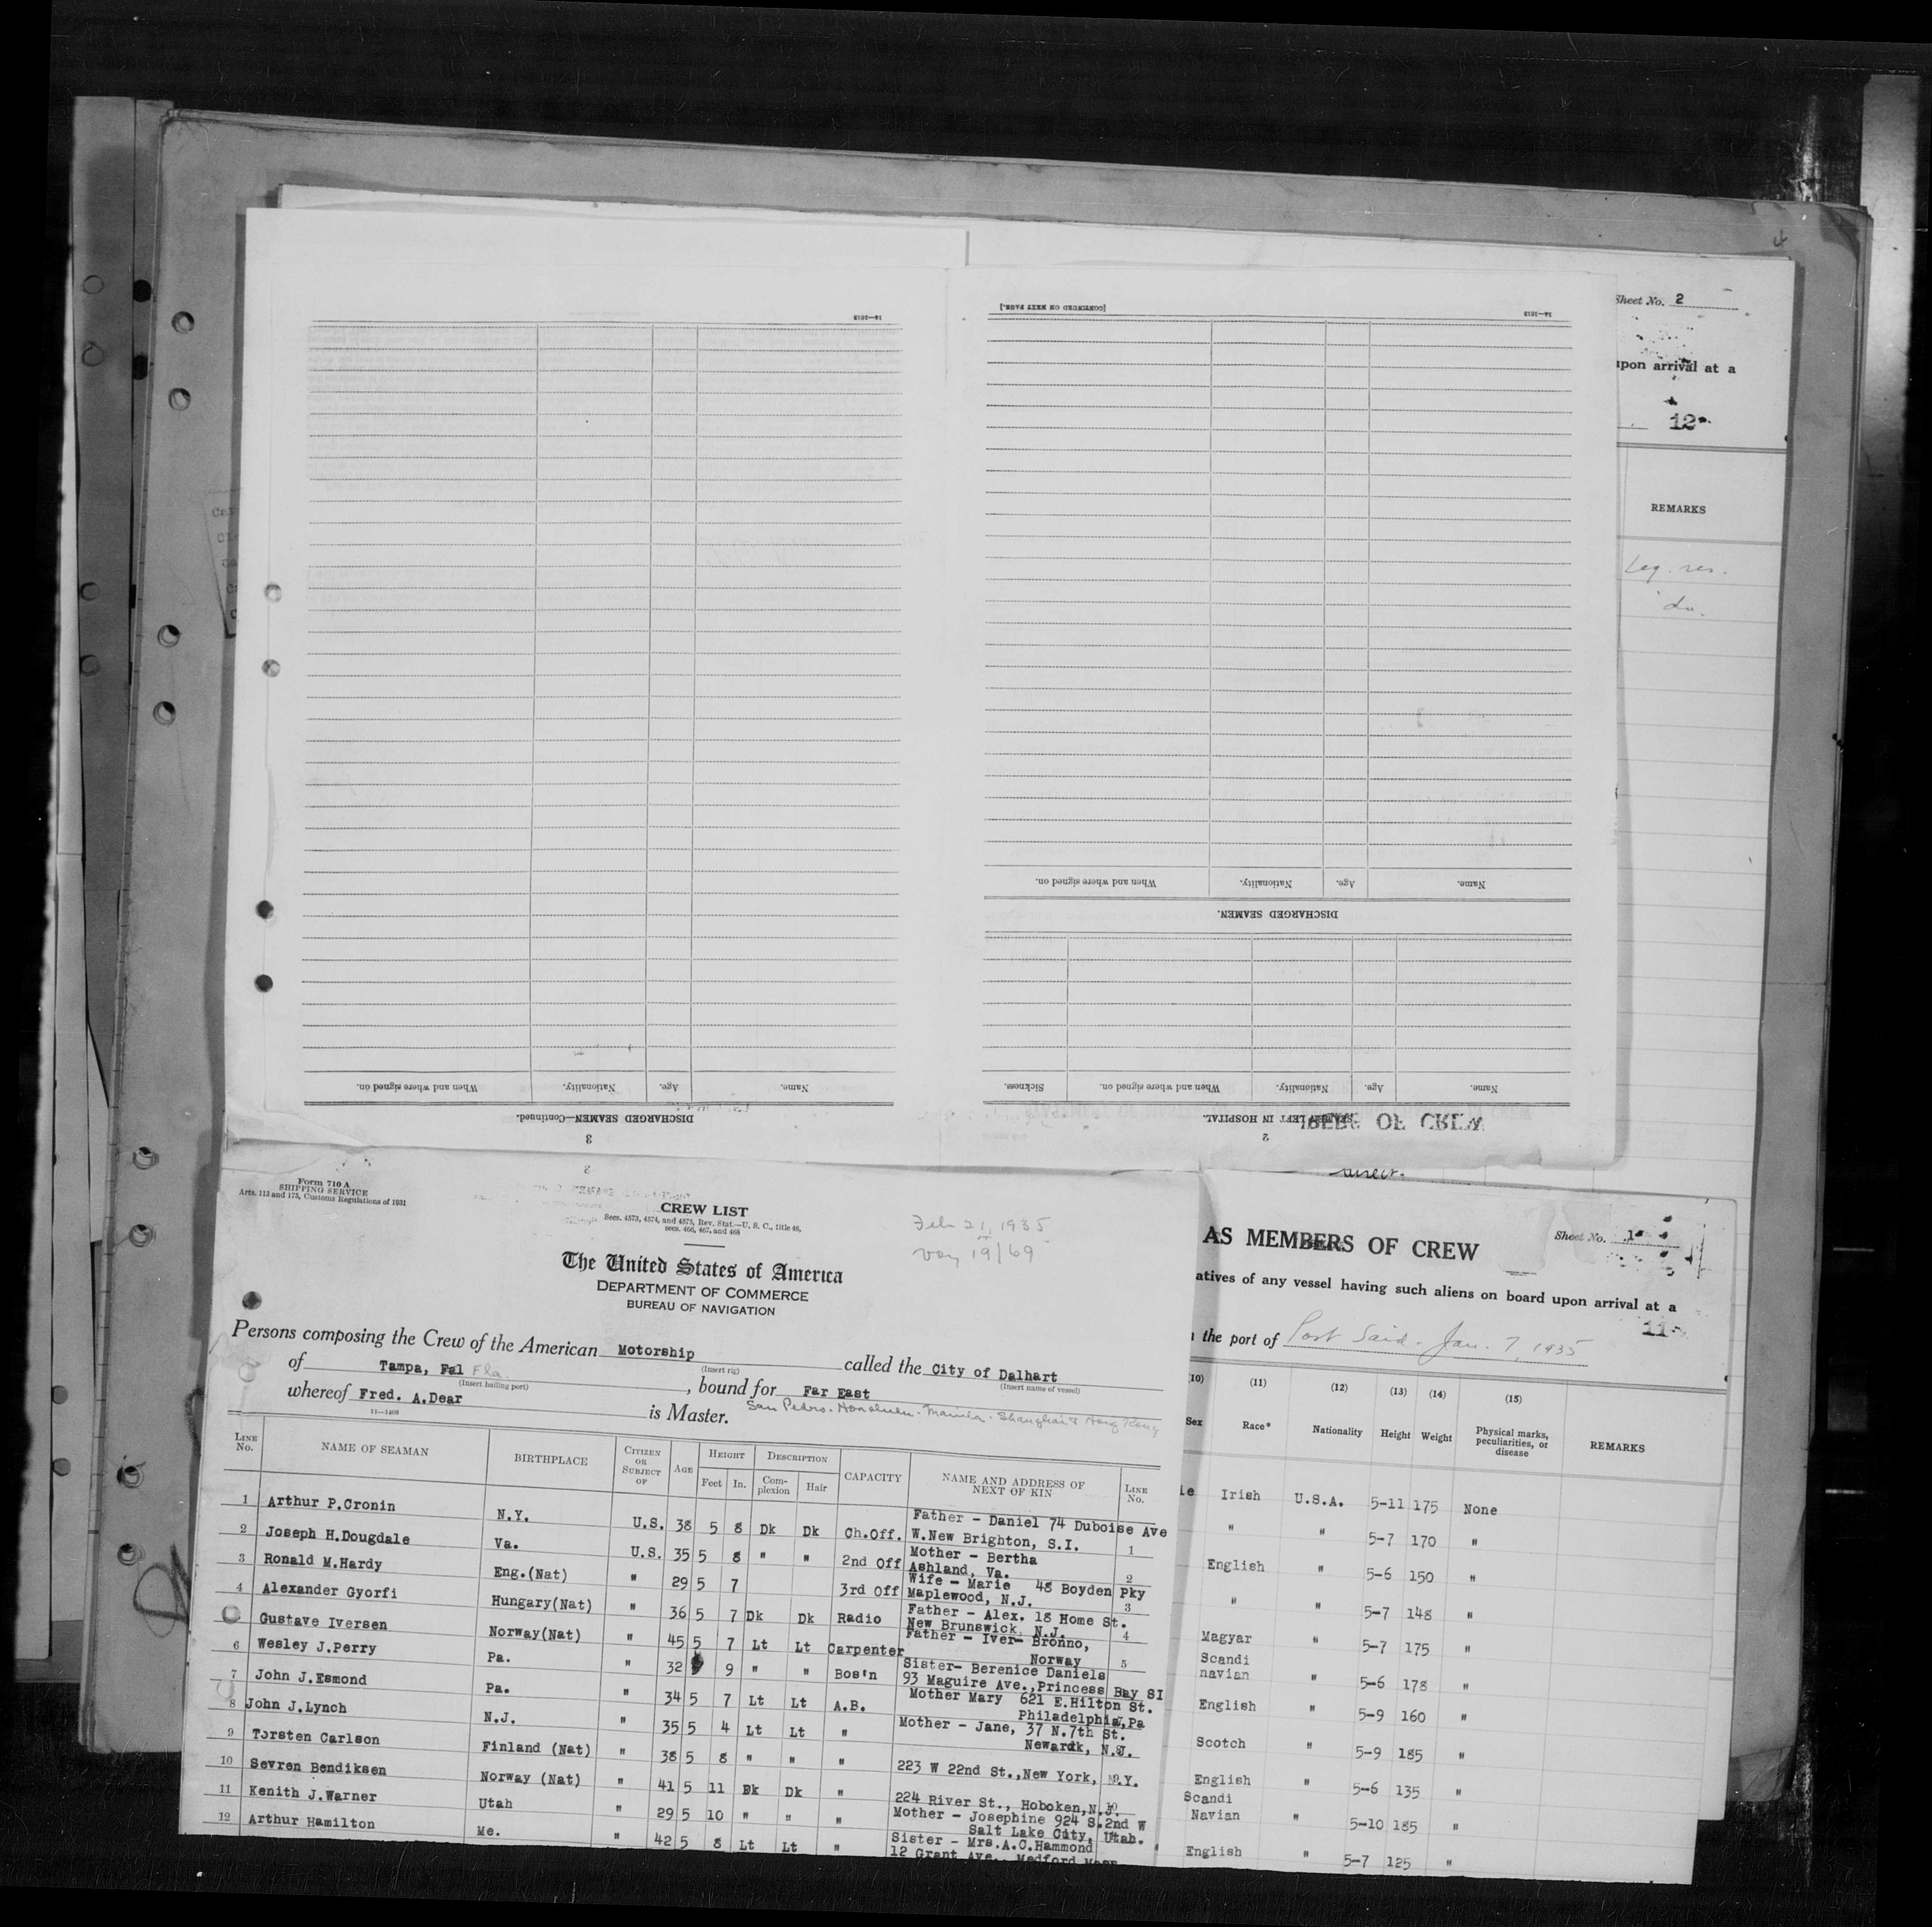 Sheet No. 2
upon arrival at a
12
REMARKS
Leg. res.
do.
[CONTINUED ON NEXT PAGE.]
14—1613
14—1613
When and where signed on.
Nationality.
Age.
Name.
DISCHARGED SEAMEN.
Sickness.
When and where signed on.
Nationality.
Age.
Name.
SEAMEN LEFT IN HOSPITAL.
2
When and where signed on.
Nationality.
Age.
Name.
DISCHARGED SEAMEN—Continued.
3
OF CREW
direct.
Form 710 A
SHIPPING SERVICE
Arts. 113 and 175, Customs Regulations of 1931
CREW LIST
Secs. 4573, 4574, and 4575, Rev. Stat.—U. S. C., title 46,
secs. 466, 467, and 468
Feb 21, 1935
Voy 19/69
The United States of America
DEPARTMENT OF COMMERCE
BUREAU OF NAVIGATION
Persons composing the Crew of the American Motorship called the City of Dalhart
(Insert rig) (Insert name of vessel)
of Tampa, Fal Fla. , bound for Far East
(Insert hailing port)
San Pedro - Honolulu - Manila - Shanghai & Hong Kong
whereof Fred. A.Dear is Master.
11—1408
LINE No. NAME OF SEAMAN BIRTHPLACE CITIZEN OR SUBJECT OF AGE HEIGHT DESCRIPTION CAPACITY NAME AND ADDRESS OF NEXT OF KIN LINE No.
Feet In. Complexion Hair
1 Arthur P.Cronin N.Y. U.S. 38 5 8 Dk Dk Ch.Off. Father - Daniel 74 Duboise Ave W.New Brighton, S.I. 1
2 Joseph H.Dougdale Va. U.S. 35 5 8 " " 2nd Off Mother - Bertha Ashland, Va. 2
3 Ronald M.Hardy Eng.(Nat) " 29 5 7 3rd Off Wife - Marie 48 Boyden Pky Maplewood, N.J. 3
4 Alexander Gyorfi Hungary(Nat) " 36 5 7 Dk Dk Radio Father - Alex. 18 Home St. New Brunswick, N.J. 4
Gustave Iversen Norway(Nat) " 45 5 7 Lt Lt Carpenter Father - Iver- Bronno, Norway 5
6 Wesley J.Perry Pa. " 32 9 " " Bos'n Sister- Berenice Daniels 93 Maguire Ave.,Princess Bay SI
7 John J.Esmond Pa. " 34 5 7 Lt Lt A.B. Mother Mary 621 E.Hilton St. Philadelphia,Pa
8 John J.Lynch N.J. " 35 5 4 Lt Lt " Mother - Jane, 37 N.7th St. Newark, N.J.
9 Torsten Carlson Finland (Nat) " 38 5 8 " " " 223 W 22nd St.,New York, N.Y.
10 Sevren Bendiksen Norway (Nat) " 41 5 11 Dk Dk " 224 River St., Hoboken,N.J. 10
11 Kenith J.Warner Utah " 29 5 10 " " " Mother - Josephine 924 S.2nd W Salt Lake City, Utah.
12 Arthur Hamilton Me. " 42 5 8 Lt Lt " Sister - Mrs.A.C.Hammond 12 Grant Ave., Medford Mass
AS MEMBERS OF CREW
Sheet No. 1
atives of any vessel having such aliens on board upon arrival at a
11
the port of Port Said - Jan. 7, 1935
(10) (11) (12) (13) (14) (15)
Sex Race* Nationality Height Weight Physical marks, peculiarities, or disease REMARKS
le Irish U.S.A. 5-11 175 None
" " 5-7 170 "
English " 5-6 150 "
" " 5-7 148 "
Magyar " 5-7 175 "
Scandi
navian " 5-6 178 "
English " 5-9 160 "
Scotch " 5-9 185 "
English " 5-6 135 "
Scandi
Navian " 5-10 185 "
English " 5-7 125 "